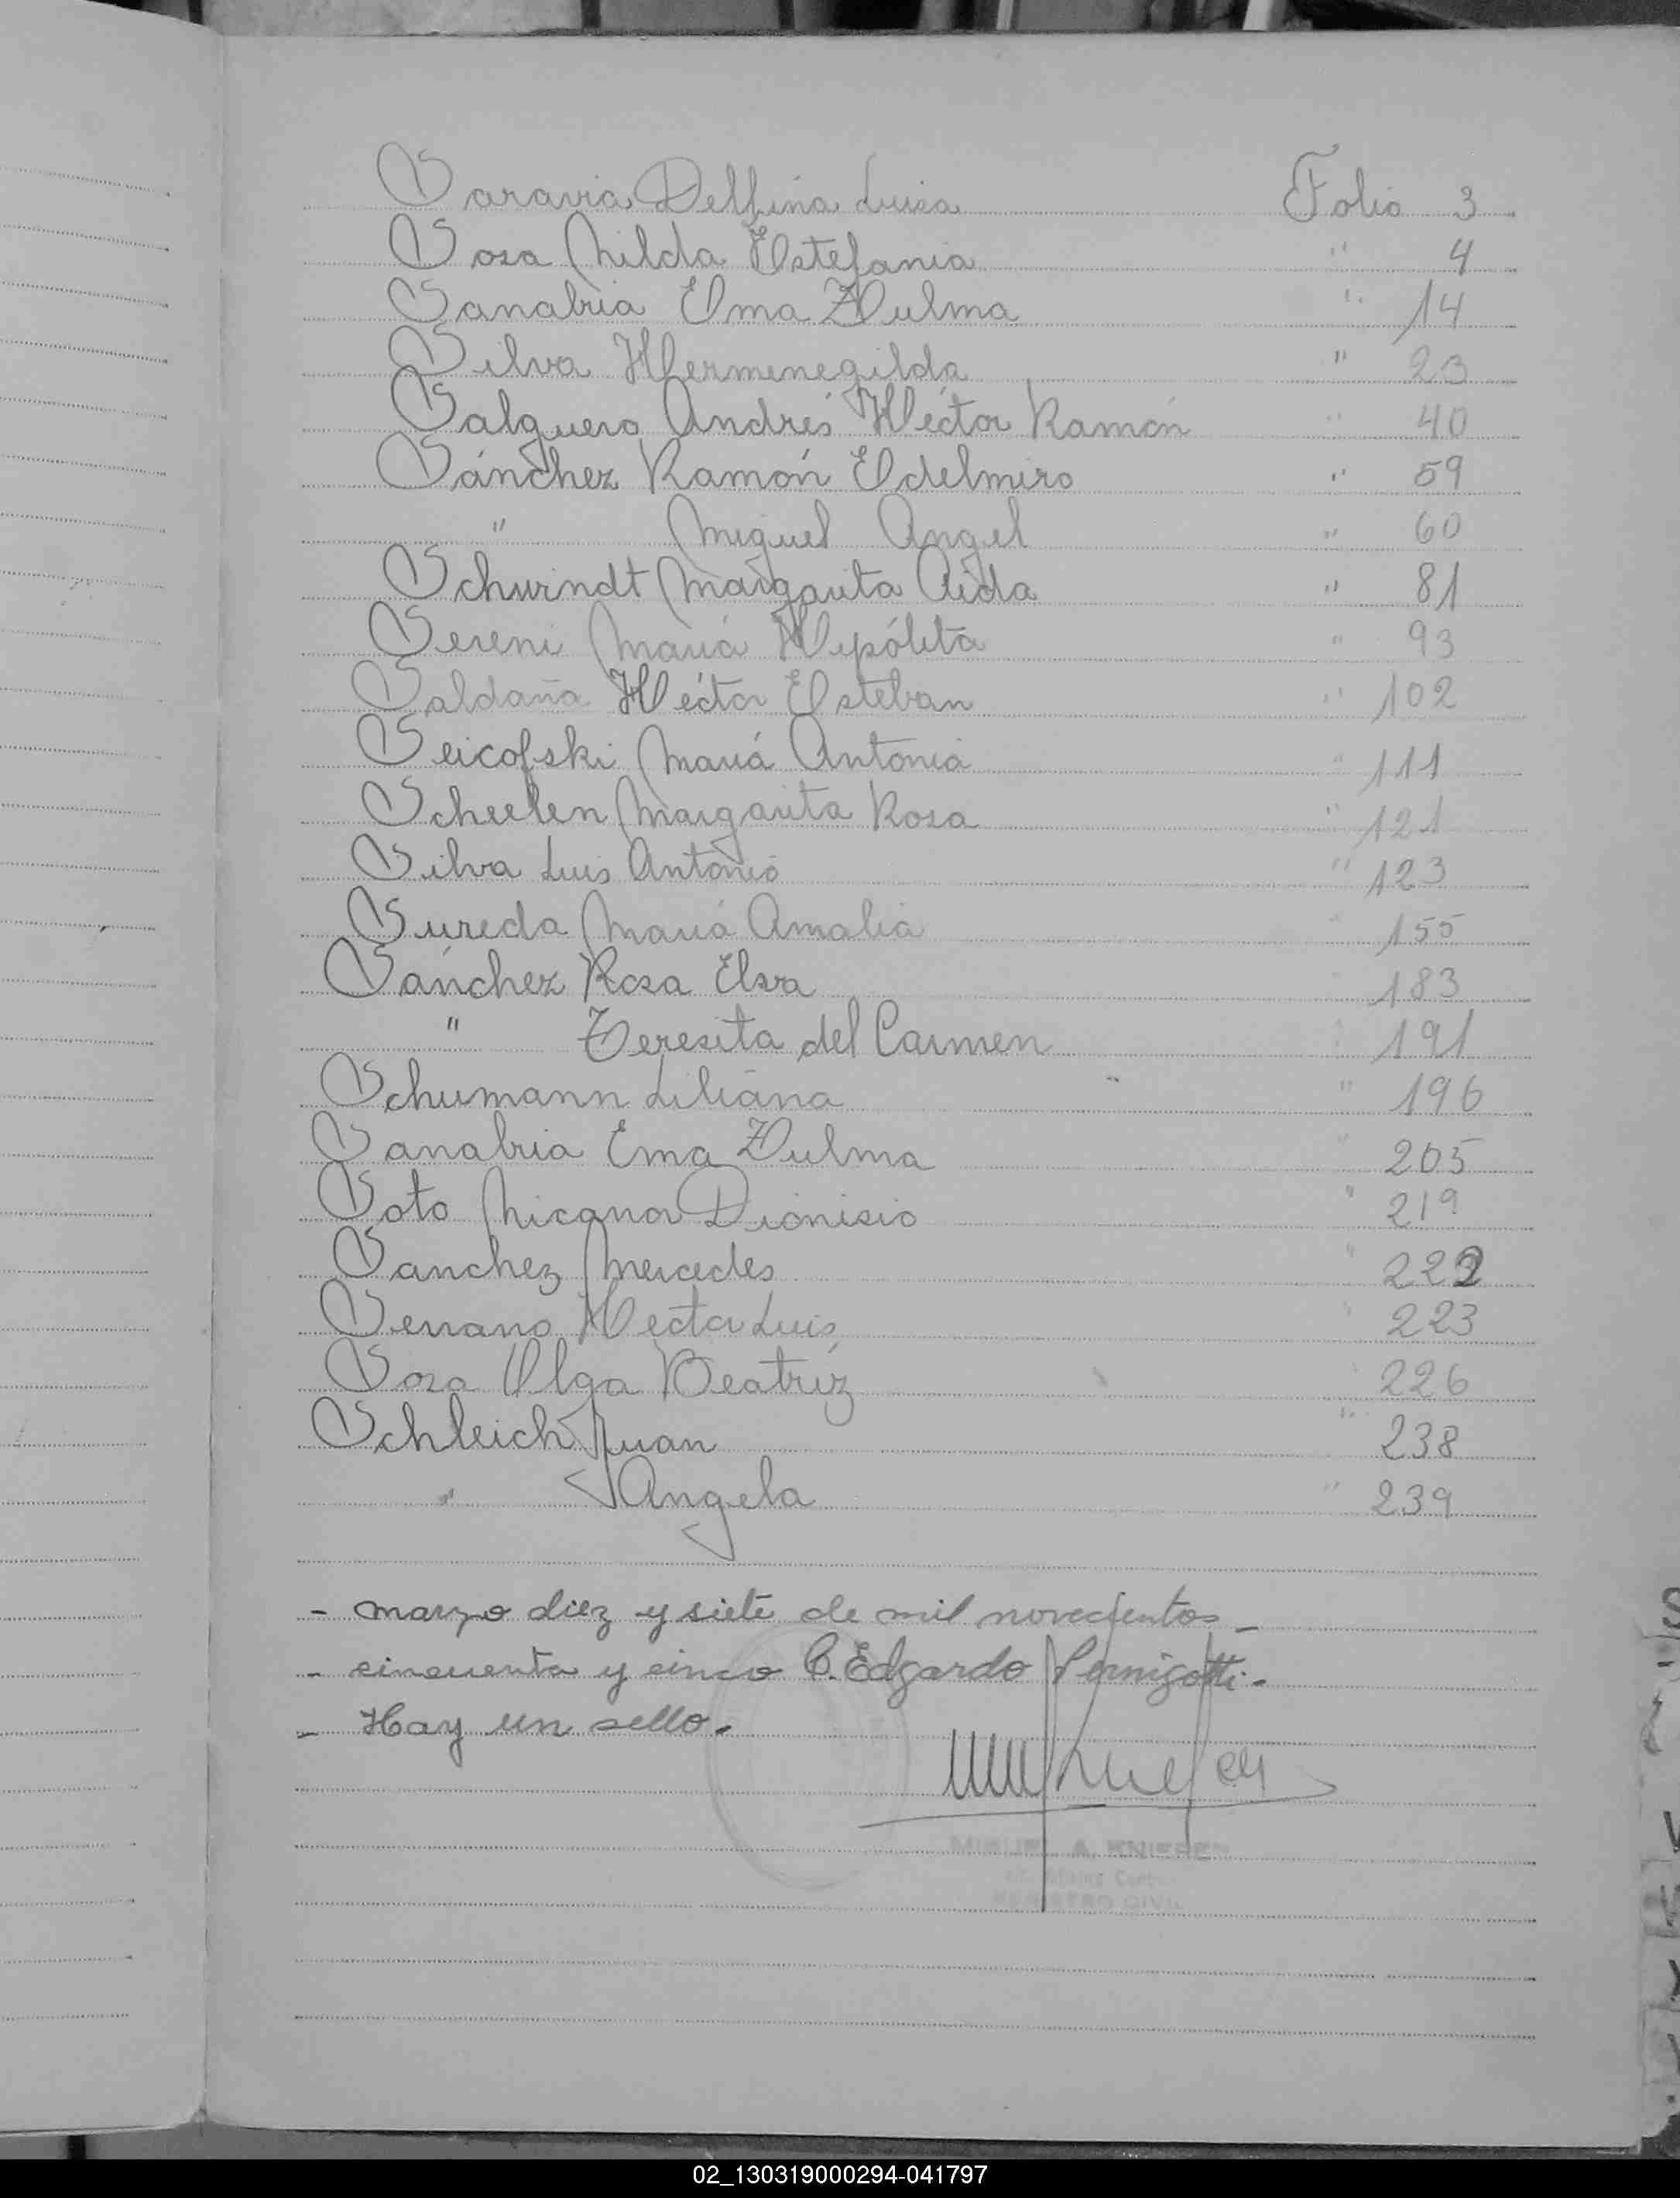 Saravia Delfina Luisa Folio 3
Sosa Nilda Estefania " 4
Sanabria Ema Zulma " 14
Silva Hermenegilda " 23
Salguero Andrés Héctor Ramón " 40
Sánchez Ramón Edelmiro " 59
" Miguel Angel " 60
Schwindt Margarita Aida " 81
Sereni María Hipólita " 93
Saldaña Héctor Esteban " 102
Seicofski María Antonia " 111
Scheelen Margarita Rosa " 121
Silva Luis Antonio " 123
Sureda María Amalia " 155
Sánchez Rosa Elsa 183
" Teresita del Carmen 191
Schumann Liliana " 196
Sanabria Ema Zulma " 205
Soto Nicanor Dionisio " 219
Sanchez Mercedes " 222
Serrano Hector Luis " 223
Sosa Olga Beatríz " 226
Schleich Juan " 238
" Angela " 239
- marzo diez y siete de mil novecientos -
- cincuenta y cinco C. Edgardo Pernigotti -
- Hay un sello -
MIGUEL A. KNIEPER
REGISTRO CIVIL
02_130319000294-041797